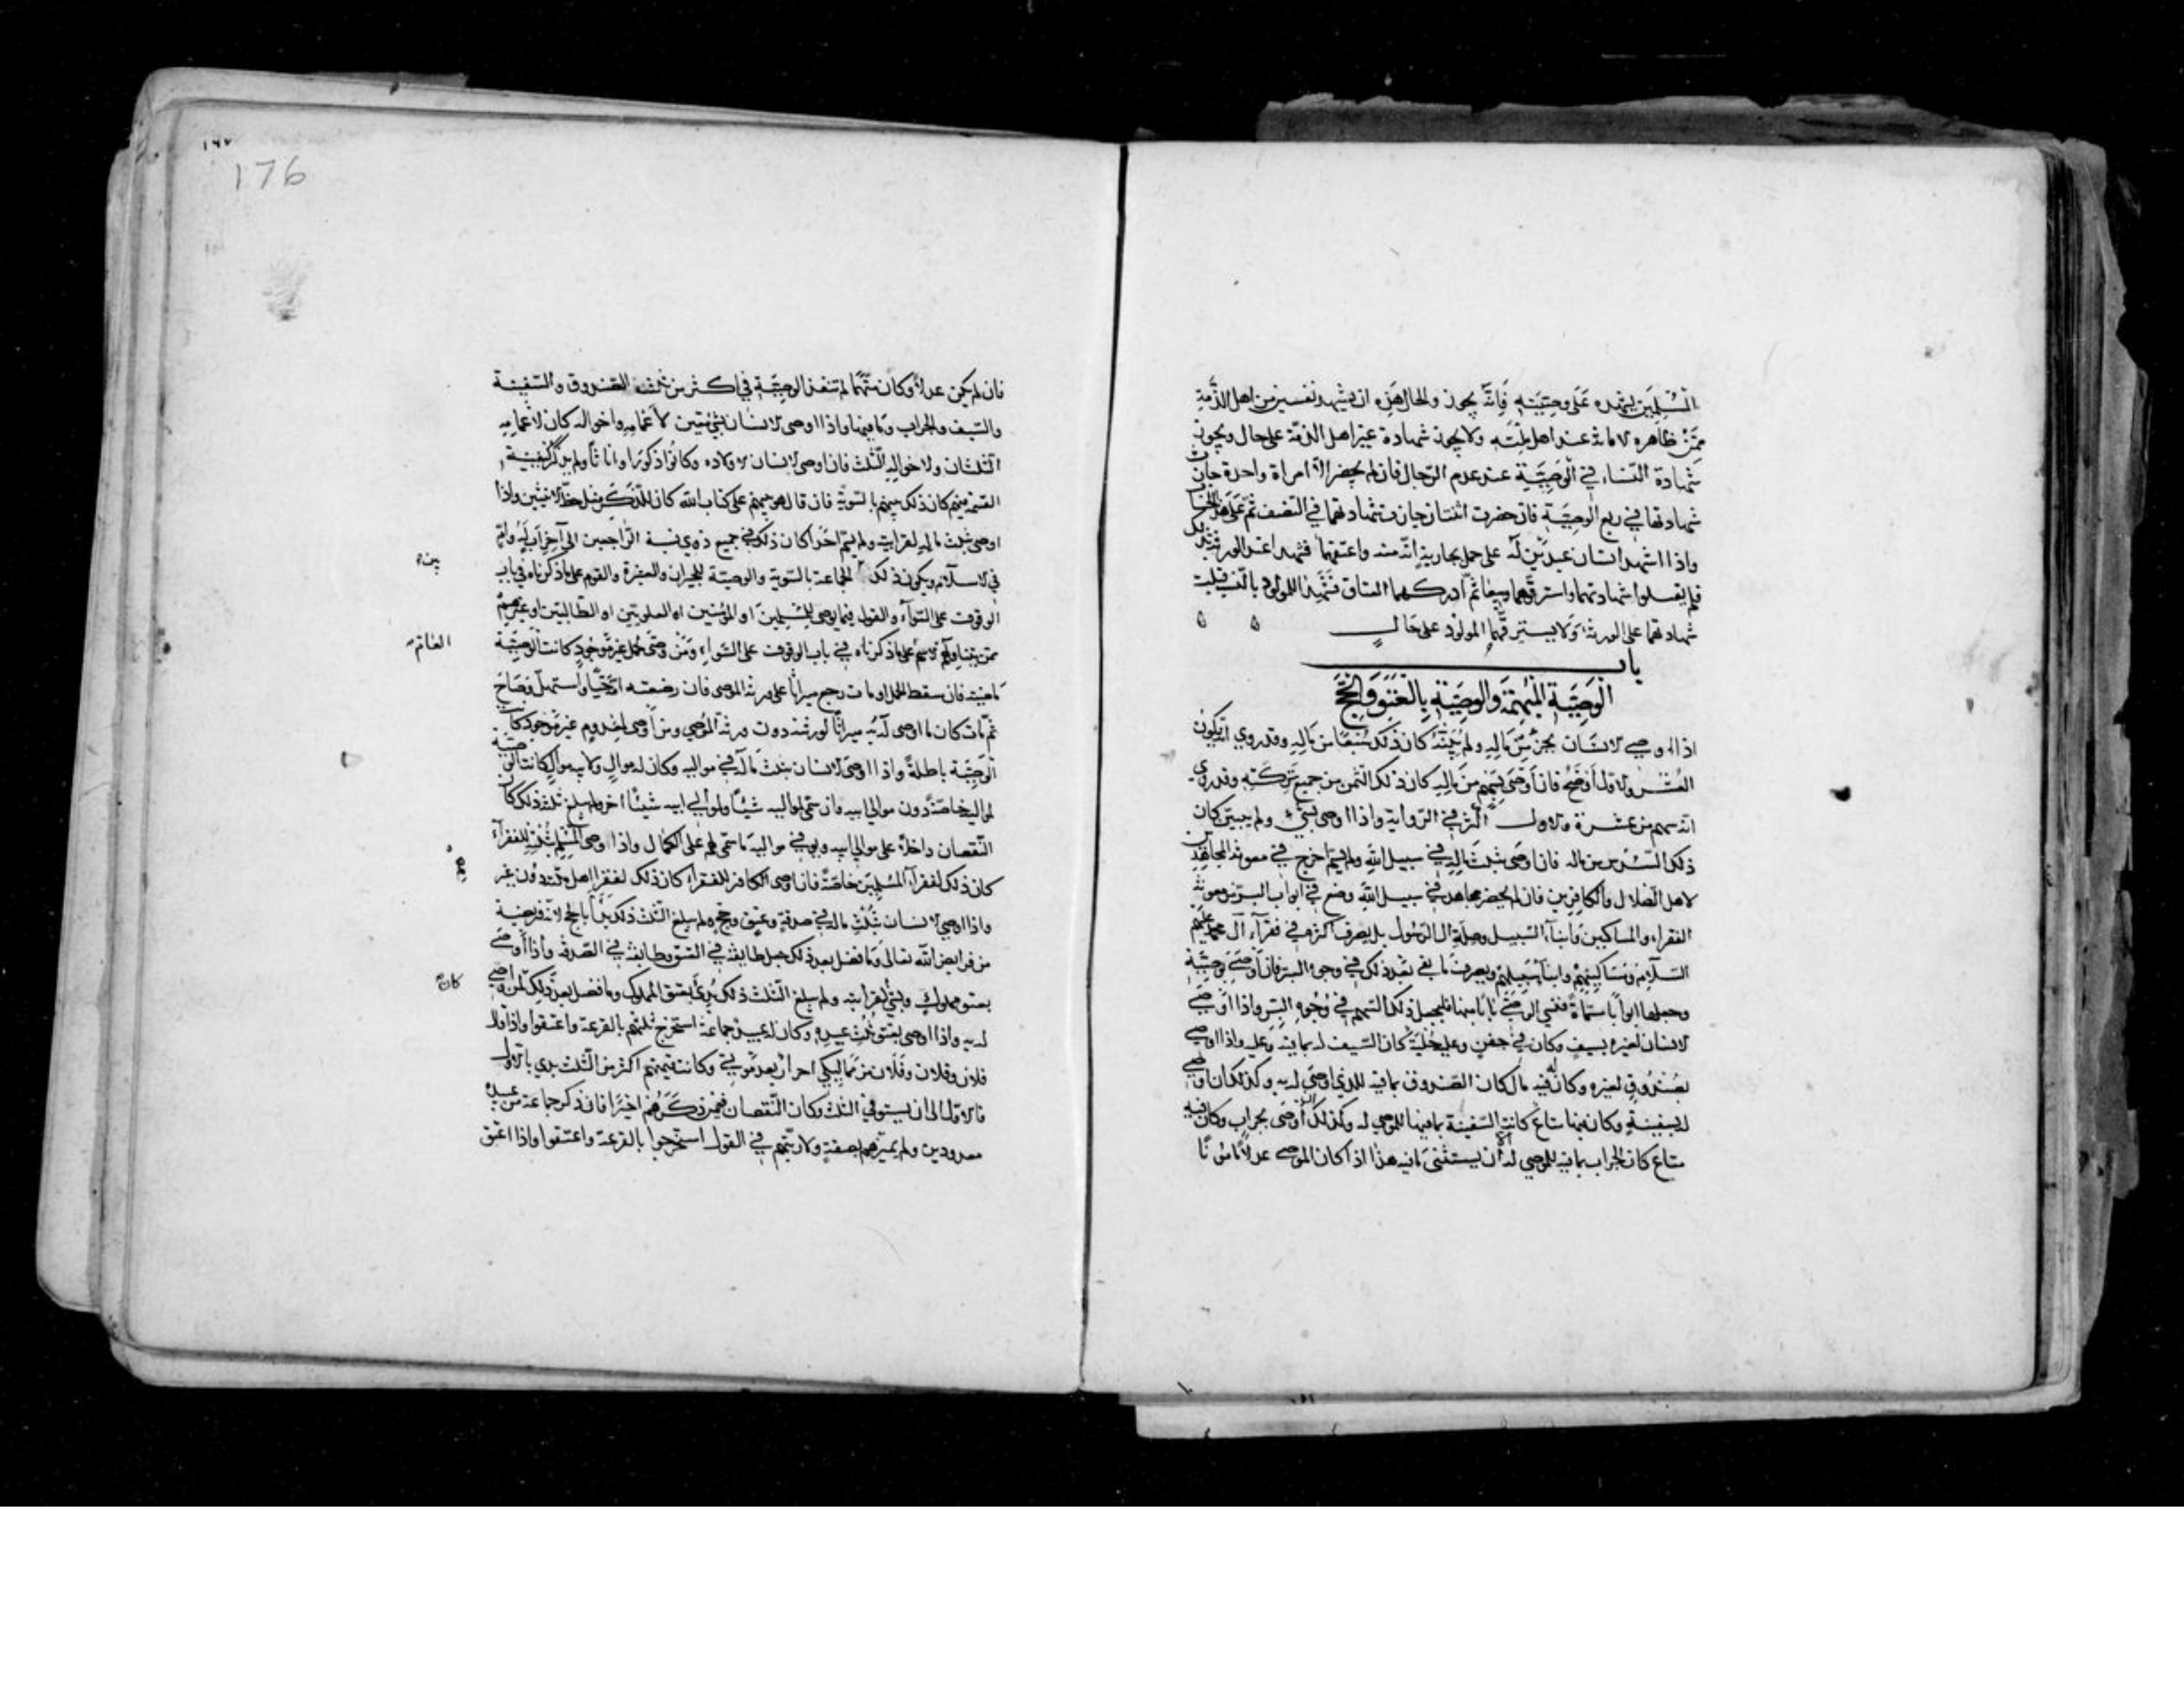 المسلمين يشهده على وصيته فانه يجوز والحال هذه ان يشهد نفسين من اهل الذمة
ممن ظاهره الامانة عند اهل ملته ولا يجوز شهادة غير اهل الذمة على حال ويجوز
شهادة النساء في الوصية عند عدم الرجال فان لم يحضر الا امراة واحدة جازت
شهادتها في ربع الوصية فان حضرت اثنتان جازت شهادتهما في النصف ثم على هذا الحساب
واذا اشهد انسان عبدين له على حمل بجارية انه منه واعتقهما فشهدا عند الورثة بذلك
فلم يقبلوا شهادتهما واسترقوهما وبيعا ثم ادركهما العتاق فشهدا للمولود بالنسب قبلت
شهادتهما على الورثة ولا يسترقهما المولود على حال
باب
الوصية المبهمة والوصية بالعتق والحج
اذا اوصى الانسان بجزء من ماله ولم يبينه كان ذلك سبعا من ماله وقد روي انه يكون
العشر والاول اوضح فان اوصى بسهم من ماله كان ذلك الثمن من جميع تركته وقد روي
انه سهم من عشرة والاول اكثر في الرواية واذا اوصى بشيء ولم يبين كان
ذلك السدس من ماله فان اوصى بثلث ماله في سبيل الله ولم يسم اخرج في معونة المجاهدين
لاهل الضلال والكافرين فان لم يحضر مجاهد في سبيل الله وضع في ابواب البر من معونة
الفقراء والمساكين وابناء السبيل وصلة ال الرسول بل يصرف اكثره في فقراء آل محمد عليهم
السلام ومساكينهم وابناء سبيلهم ويصرف ما بقي بعد ذلك في وجوه البر فان اوصى بوصية
وجعلها ابوابا مسماة فنسي الوصي بابا منها فليجعل ذلك السهم في وجوه البر واذا اوصى
الانسان لغيره بسيف وكان في جفن وعليه حلية كان السيف له بما فيه وعليه واذا اوصى
بصندوق لغيره وكان فيه مال كان الصندوق بما فيه للذي اوصى له به وكذلك ان اوصى
له بسفينة وكان فيها متاع كانت السفينة بما فيها للموصى له وكذلك ان اوصى بجراب وكان فيه
متاع كان الجراب بما فيه للموصى له الا ان يستثنى ما فيه هذا اذا كان الموصي عدلا مامونا
١٦٧
176
فان لم يكن عدلا وكان متهما لم تنفذ الوصية في اكثر من ثلث الصندوق والسفينة
والسيف والجراب وما فيها واذا اوصى الانسان بشيء معين لاعمامه واخواله كان لاعمامه
الثلثان ولاخواله الثلث فان اوصى الانسان لاولاده وكانوا ذكورا واناثا ولم يذكر كيفية
القسمة بينهم كان ذلك بينهم بالسوية فان قال هو بينهم على كتاب الله كان للذكر مثل حظ الانثيين واذا
اوصى بثلث ماله لقرابته ولم يسم احدا كان ذلك في جميع ذوي نسبه الراجعين الى آخر اب له وام
في الاسلام ويكون ذلك الجماعة بالسوية والوصية للجيران والعشيرة والقوم على ما ذكرناه في باب
بين
الوقوف على السواء والقول فيما يوصى للمسلمين او المؤمنين او العلويين او الطالبيين او غيرهم
ممن يتناولهم الاسم على ما ذكرناه في باب الوقوف على السواء ومن وصى لحمل غير موجود كانت الوصية
ماضية فان سقط الحمل او مات رجع ميراثا على ورثة الموصي فان وضعته امه حيا واستهل وصاح
ثم مات كان ما اوصى له به ميراثا لورثته دون ورثة الموصي ومن اوصى لمعدوم غير موجود كانت
الوصية باطلة واذا اوصى الانسان بثلث ماله في مواليه وكان له موال ولابيه موال كانت الوصية
لمواليه خاصة دون موالي ابيه وان سمى لمواليه شيئا ولموالي ابيه شيئا اخر ولم يبلغ ثلث ذلك كان
النقصان داخلا على موالي ابيه ويوفى مواليه ما سمى لهم على الكمال واذا اوصى المسلم بثلثه للفقراء
كان ذلك لفقراء المسلمين خاصة فان اوصى الكافر للفقراء كان ذلك لفقراء اهل ملته دون غيرهم
واذا اوصى الانسان بثلث ماله في صدقة وعتق وحج ولم يبلغ الثلث ذلك بدأ بالحج لانه فريضة
من فرايض الله تعالى وما فضل بعد ذلك جعل طايفة في العتق وطايفة في الصدقة واذا اوصى
بعتق مملوك وبشيء لقرابته ولم يبلغ الثلث ذلك بدئ بعتق المملوك وما فضل بعد ذلك لمن اوصى
كان
له به واذا اوصى بعتق ثلث عبيده وكان له عبيد جماعة استخرج ثلثهم بالقرعة واعتقوا واذا قال
فلان وفلان وفلان من مماليكي احرار بعد موتي وكانت قيمتهم اكثر من الثلث بدئ بالاول
فالاول الى ان يستوفى الثلث وكان النقصان فيمن ذكرهم اخيرا فان ذكر جماعة من عبيده
معدودين ولم يميزهم بصفة ولا رتبهم في القول استخرجوا بالقرعة واعتقوا واذا اعتق